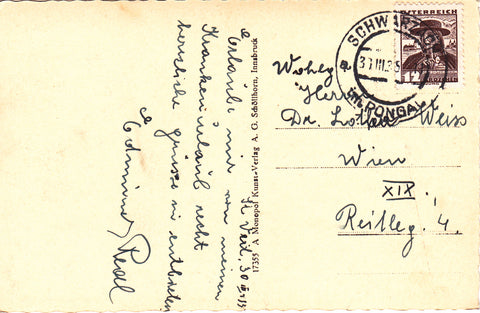 St. Veit, 30. III. 35
Erlaube mir von meinem
Krankenurlaub recht
herzliche Grüsse zu entbieten
Edmund Redl
17355 A Monopol Kunst-Verlag A. G. Schöllhorn, Innsbruck
ÖSTERREICH
12
SCHWARZACH
31 III 35
im PONGAU
Wohlg.
Herrn
Dr. Lothar Weiss
Wien
XIX.
Reitleg. 4.